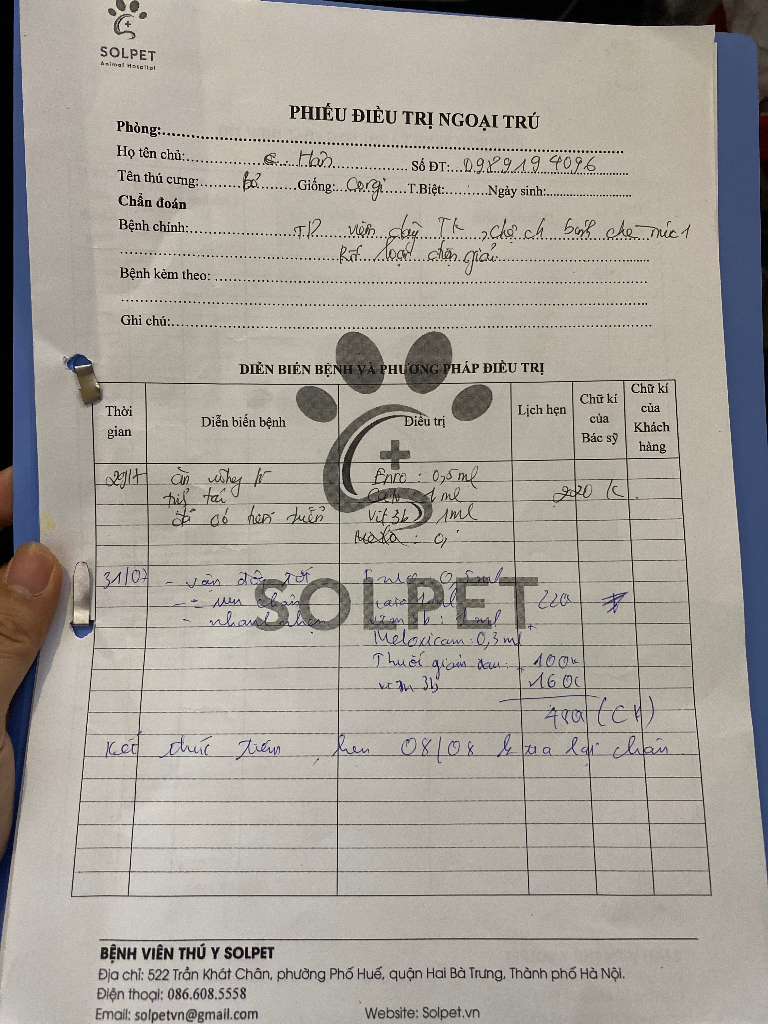 SOLPET
Animal Hospital
PHIẾU ĐIỀU TRỊ NGOẠI TRÚ
Phòng:
Họ tên chủ: c. Hân Số ĐT: 0989194096
Tên thú cưng: Bơ Giống: Corgi T.Biệt: Ngày sinh:
Chẩn đoán
Bệnh chính: TD viêm dây TK, chệch bánh chè mức 1
loạn
Bệnh kèm theo:
Ghi chú:
DIỄN BIẾN BỆNH VÀ PHƯƠNG PHÁP ĐIỀU TRỊ
Thời gian
Diễn biến bệnh
Điều trị
Lịch hẹn
Chữ kí của Bác sỹ
Chữ kí của Khách hàng
29/7 ăn uống Enro : 0,5ml
1 ml 220 K
đã có Vit 3b 1ml
: 0,
31/07 - vận 0,5ml
- chân 220
- nhanh nhẹn 3b : ml
Meloxicam: 0,3 ml
Thuốc giảm đau: 100k
3b 160k
480 (CK)
Kết thúc tiêm, hẹn 08/08 lại chân
SOLPET
BỆNH VIÊN THÚ Y SOLPET
Địa chỉ: 522 Trần Khát Chân, phường Phố Huế, quận Hai Bà Trưng, Thành phố Hà Nội.
Điện thoại: 086.608.5558
Email: solpetvn@gmail.com Website: Solpet.vn